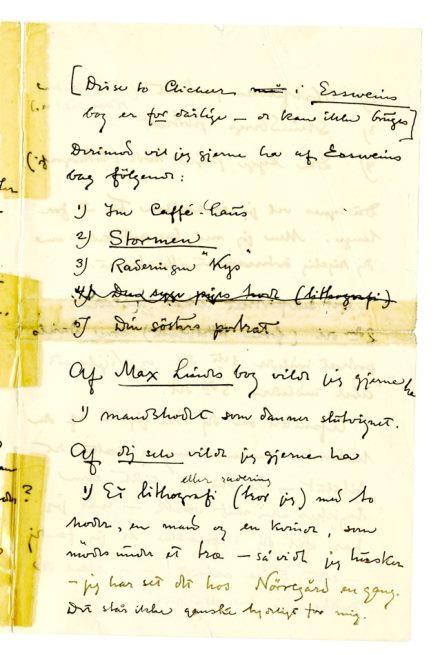 [Disse to Clicheer i Essweins
bog er for dårlige – de kan ikke bruges]
Derimod vil jeg gjerne ha af Essweins
bog følgende:
1) Im Caffé-haus
2) Stormen
3) Raderingen "Kys"
4) Den syge piges hode (lithografi)
5) Din søsters portræt
Af Max Lindes bog vilde jeg gjerne ha
1) mandshodet som danner slutvignet.
Af dig selv vilde jeg gjerne ha
eller radering
1) Et lithografi (tror jeg) med to
hoder, en mand og en kvinde, som
mødes under et træ – så vidt jeg husker
– jeg har set det hos Nörregård engang.
Det står ikke ganske tydeligt for mig.